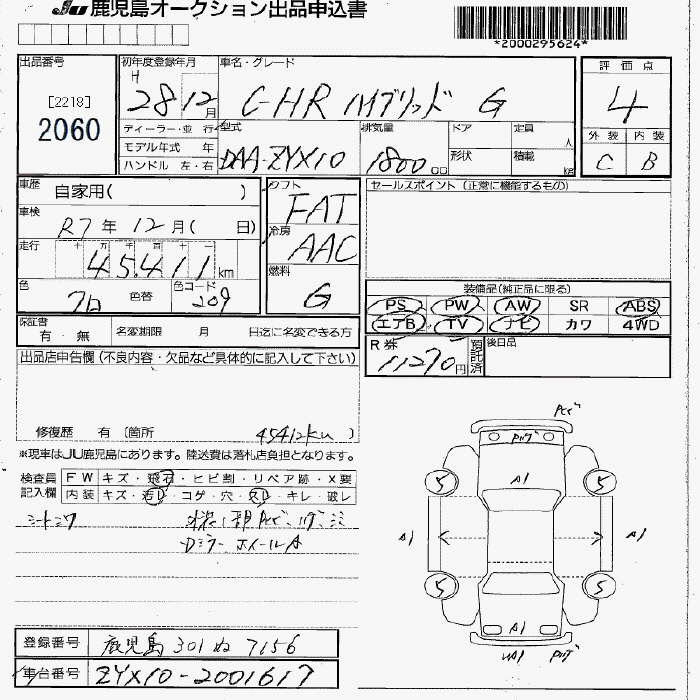 JU 鹿児島オークション出品申込書
*2000295624*
出品番号
[2218]
2060
初年度登録年月
H 28 12月
車名・グレード
C-HR ハイブリッド G
評価点
4
外装 内装
C B
ディーラー・並 行
モデル年式 年
ハンドル 左・右
型式
DAA-ZYX10
排気量
1800 cc
ドア
形状
定員 人
積載 kg
車歴
自家用( )
車検
R7年 12月( 日)
走行
十 万 千 百 十 一
45411 km
色
色替
色コード
209
シフト
FAT
冷房
AAC
燃料
G
セールスポイント (正常に機能するもの)
装備品(純正品に限る)
PS PW AW SR ABS
エアB TV ナビ カワ 4WD
R券
11270円
預託済
後日品
保証書
有・無
名変期限 月 日迄に名変できる方
出品店申告欄(不良内容・欠品など具体的に記入して下さい)
修復歴 有 (箇所 45412km )
※現車はJU鹿児島にあります。陸送費は落札店負担となります。
検査員記入欄
FW キズ・飛石・ヒビ割・リペア跡・X要
内装 キズ・汚れ・コゲ・穴・スレ・キレ・破レ
Dミラー ホイールA
A1
5 5
A1 A1
5 5
A1
登録番号
鹿児島 301 ぬ 7156
車台番号
ZYX10-2001617